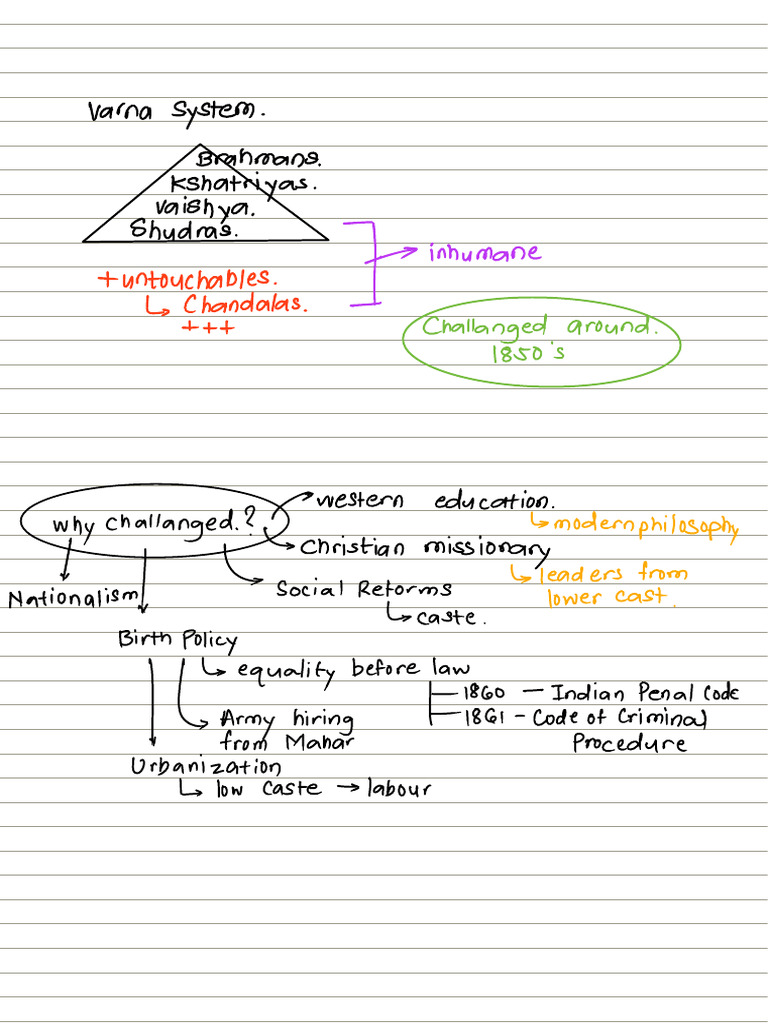 Varna System.
Brahmans.
Kshatriyas.
Vaishya.
Shudras.
inhumane
+untouchables.
Chandalas.
+++
Challanged around.
1850's
why challanged.?
western education.
modern philosophy
Christian missionary
leaders from
lower cast.
Social Reforms
caste.
Nationalism
Birth Policy
equality before law
1860 — Indian Penal Code
1861 - Code of Criminal
Procedure
Army hiring
from Mahar
Urbanization
low caste → labour